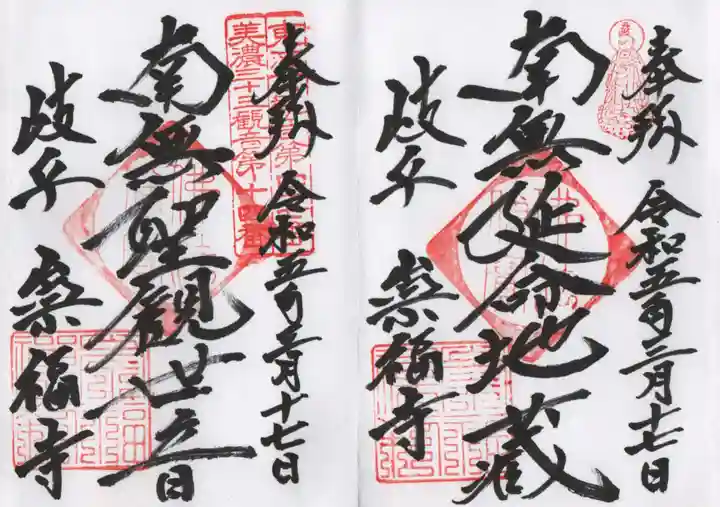 奉拝 令和五年三月十七日
南無延命地蔵
岐阜 崇福寺
奉拝 令和五年三月十七日
美濃三十三觀音第十四番
南無聖観世音
岐阜 崇福寺